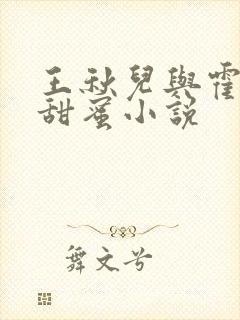 王秋兒與霍
甜蜜小說
舞文兮